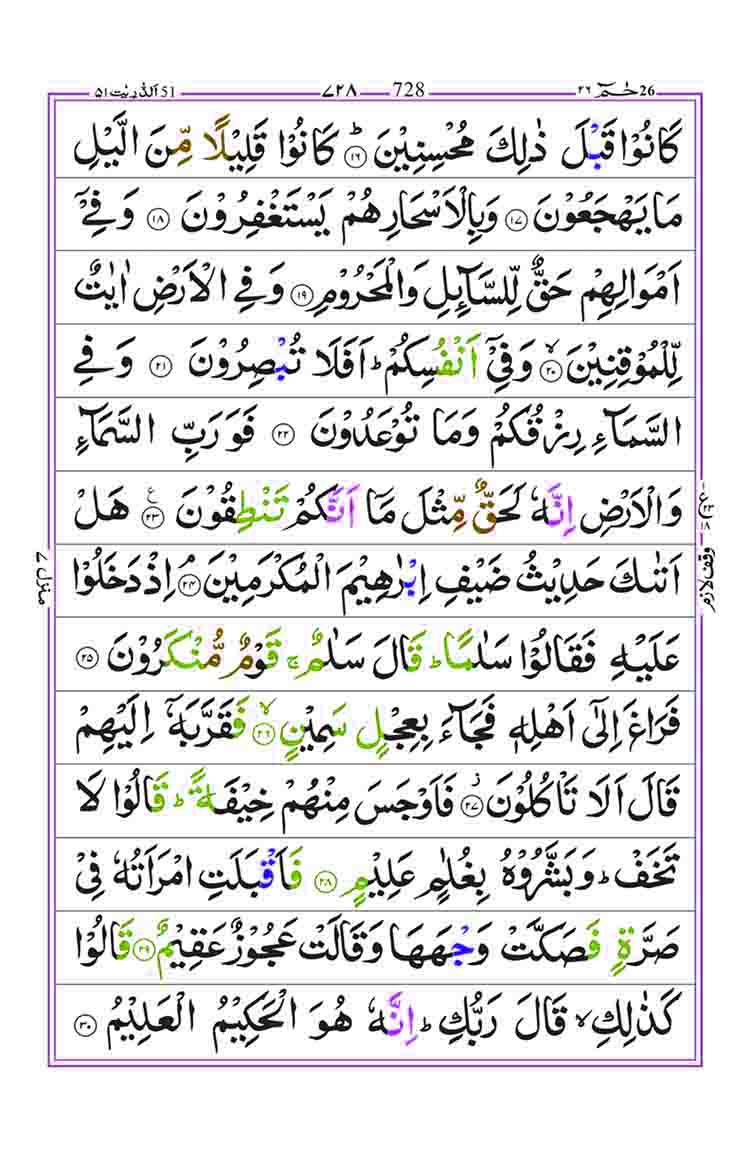 حٰمٓ 26 ٢٦
728 ٧٢٨
51 الذّٰرِيٰت ٥١
كَانُوْا قَبْلَ ذٰلِكَ مُحْسِنِيْنَ ؕ ١٦ كَانُوْا قَلِيْلًا مِّنَ الَّيْلِ
مَا يَهْجَعُوْنَ ١٧ وَبِالْاَسْحَارِ هُمْ يَسْتَغْفِرُوْنَ ١٨ وَفِيْۤ
اَمْوَالِهِمْ حَقٌّ لِّلسَّآئِلِ وَالْمَحْرُوْمِ ١٩ وَفِي الْاَرْضِ اٰيٰتٌ
لِّلْمُوْقِنِيْنَ ۙ ٢٠ وَفِيْۤ اَنْفُسِكُمْ ؕ اَفَلَا تُبْصِرُوْنَ ٢١ وَفِي
السَّمَآءِ رِزْقُكُمْ وَمَا تُوْعَدُوْنَ ٢٢ فَوَرَبِّ السَّمَآءِ
وَالْاَرْضِ اِنَّهٗ لَحَقٌّ مِّثْلَ مَاۤ اَنَّكُمْ تَنْطِقُوْنَ ٢٣ ع هَلْ
اَتٰىكَ حَدِيْثُ ضَيْفِ اِبْرٰهِيْمَ الْمُكْرَمِيْنَ ۘ ٢٤ اِذْ دَخَلُوْا
عَلَيْهِ فَقَالُوْا سَلٰمًا ؕ قَالَ سَلٰمٌ ۚ قَوْمٌ مُّنْكَرُوْنَ ٢٥
فَرَاغَ اِلٰۤى اَهْلِهٖ فَجَآءَ بِعِجْلٍ سَمِيْنٍ ۙ ٢٦ فَقَرَّبَهٗۤ اِلَيْهِمْ
قَالَ اَلَا تَاْكُلُوْنَ ز ٢٧ فَاَوْجَسَ مِنْهُمْ خِيْفَةً ؕ قَالُوْا لَا
تَخَفْ ؕ وَبَشَّرُوْهُ بِغُلٰمٍ عَلِيْمٍ ٢٨ فَاَقْبَلَتِ امْرَاَتُهٗ فِيْ
صَرَّةٍ فَصَكَّتْ وَجْهَهَا وَقَالَتْ عَجُوْزٌ عَقِيْمٌ ٢٩ قَالُوْا
كَذٰلِكِ ۙ قَالَ رَبُّكِ ؕ اِنَّهٗ هُوَ الْحَكِيْمُ الْعَلِيْمُ ٣٠
وقف لازم
منزل ٧